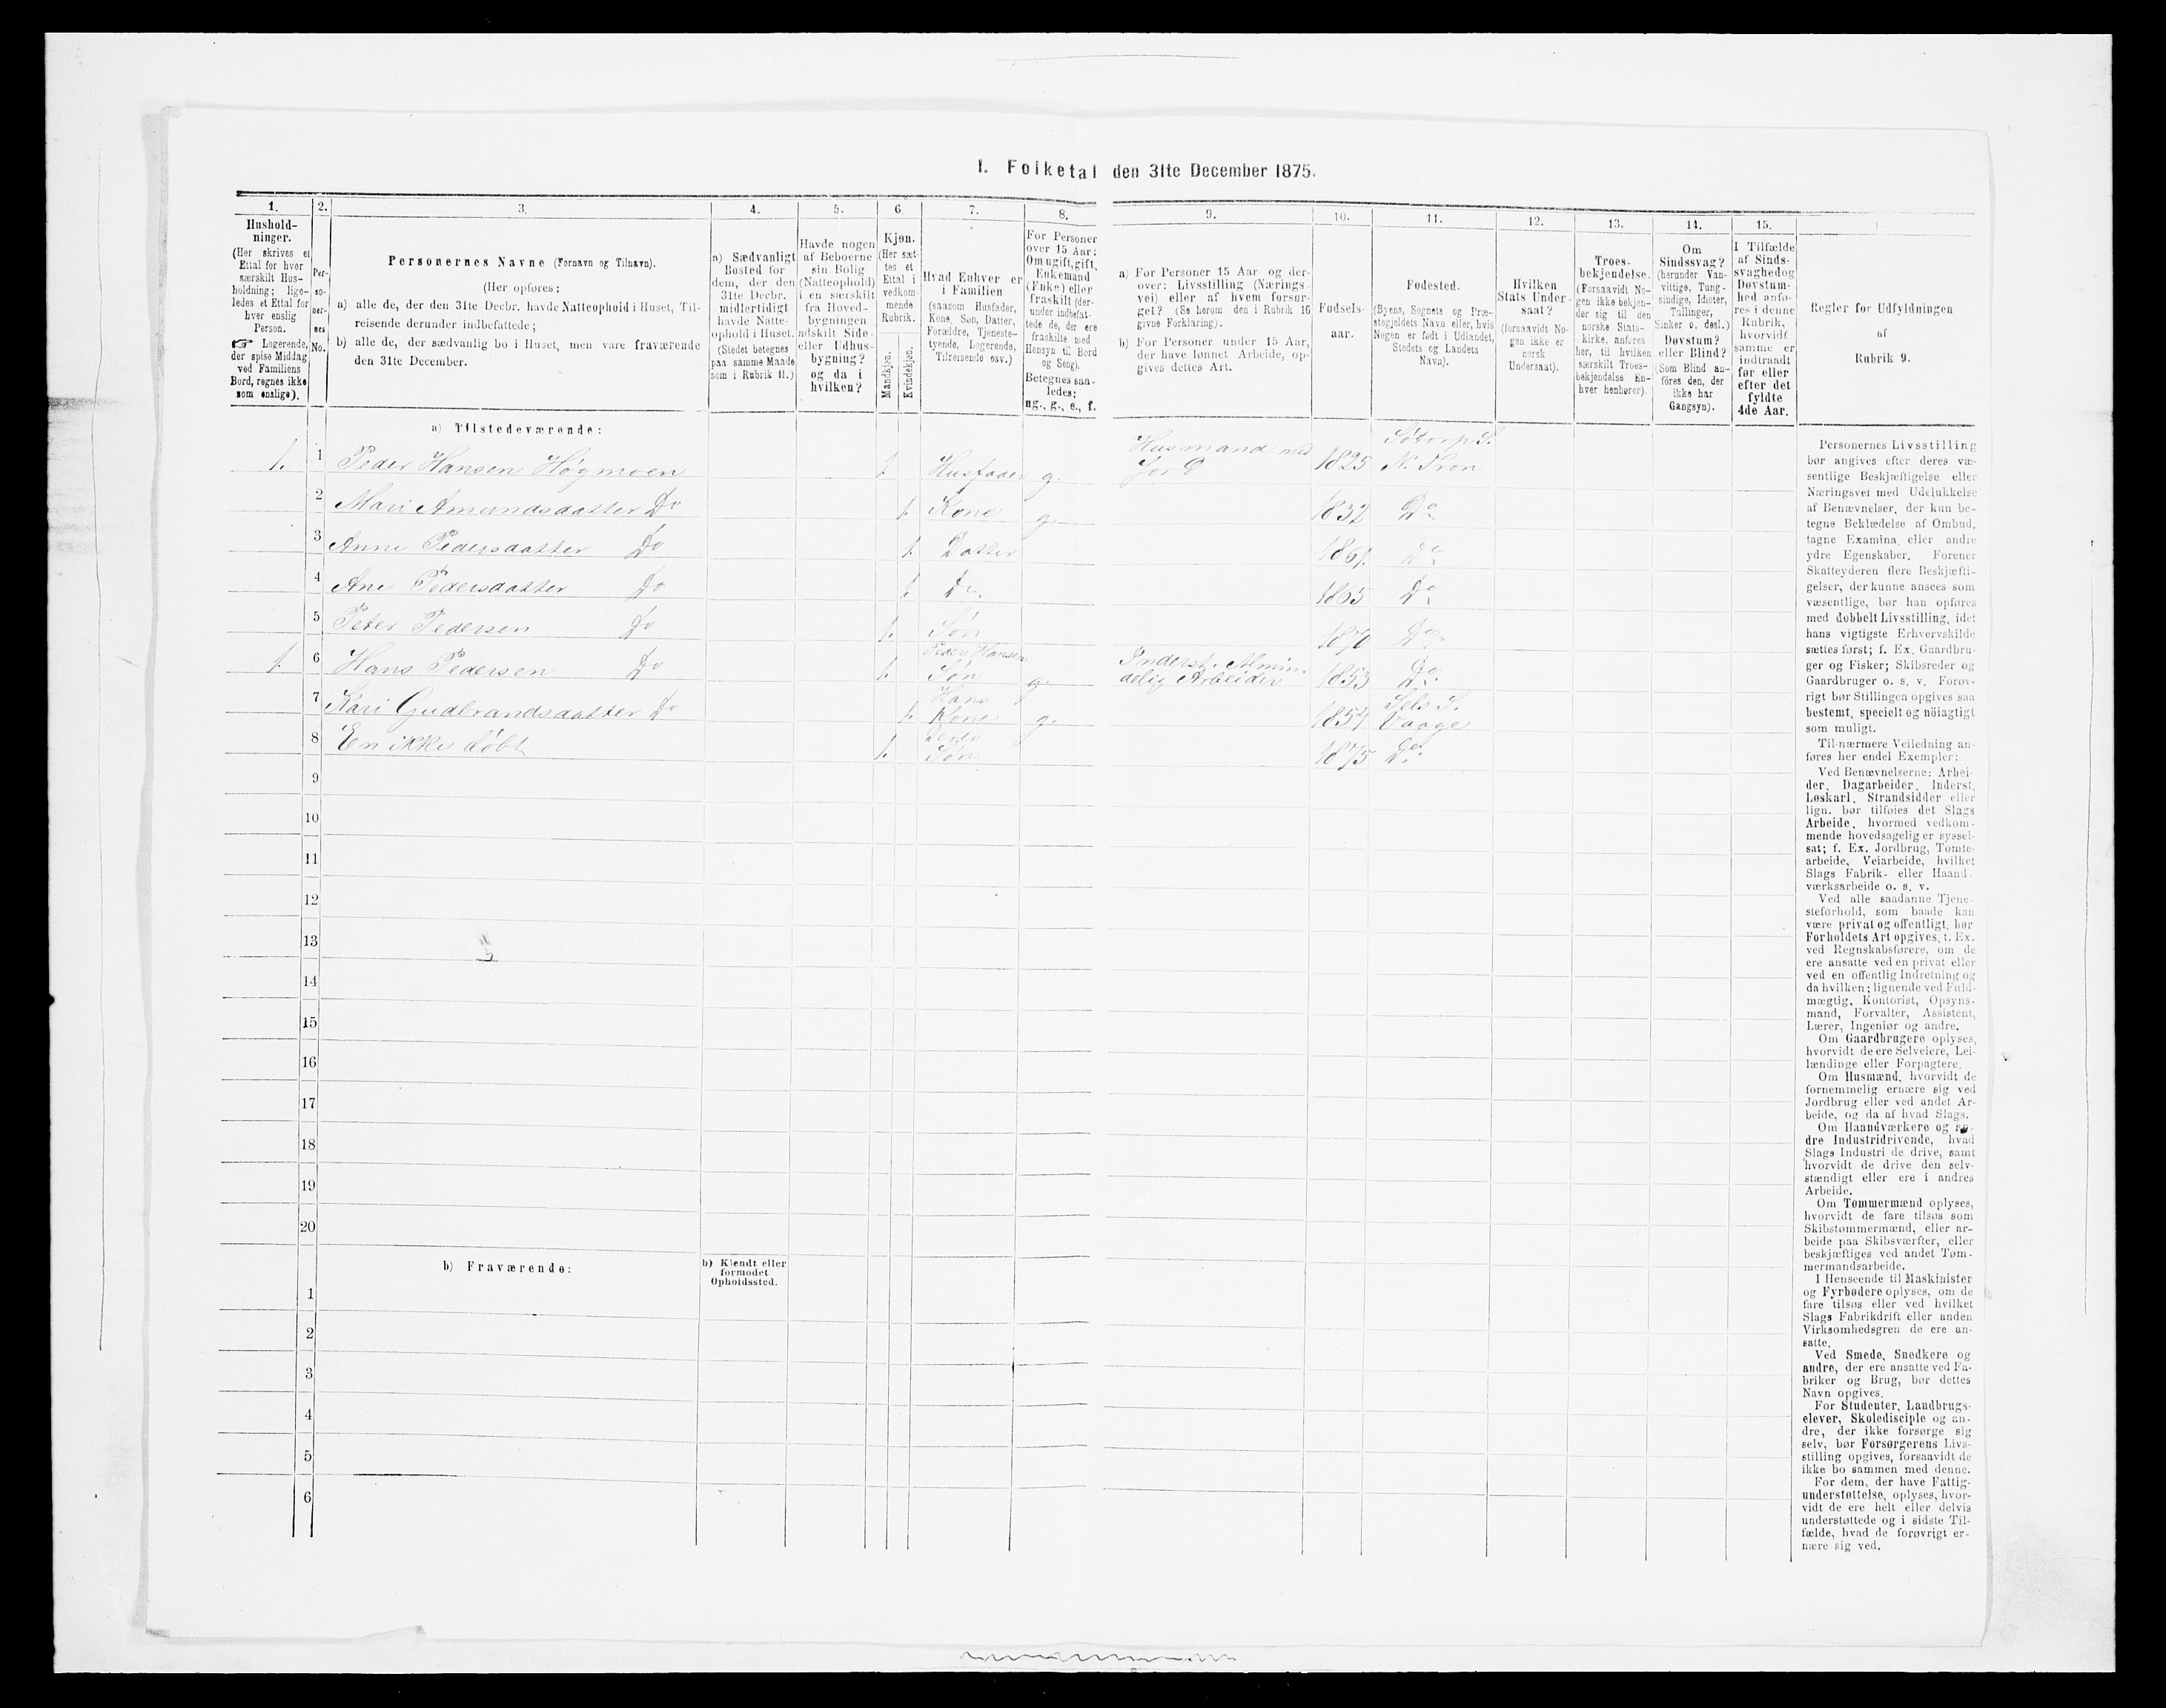 I. Folketal den 31te December 1875.
1.
Hushold-
ninger.
(Her skrives et
Ettal for hver
særskilt Hus-
holdning; lige-
ledes et Ettal for
hver enslig
Person.
☞ Logerende,
der spise Middag
ved Familiens
Bord, regnes ikke
som enslige).
2.
Per-
so-
ner-
nes
No.
3.
Personernes Navne (Fornavn og Tilnavn).
(Her opføres:
a) alle de, der den 31te Decbr. havde Natteophold i Huset, Til-
reisende derunder indbefattede;
b) alle de, der sædvanlig bo i Huset, men vare fraværende
den 31te December.
4.
a) Sædvanligt
Bosted for
dem, der den
31te Decbr.
midlertidigt
havde Natte-
ophold i Huset.
(Stedet betegnes
paa samme Maade
som i Rubrik 11.)
5.
Havde nogen
af Beboerne
sin Bolig
(Natteophold)
i en særskilt
fra Hoved-
bygningen
adskilt Side-
eller Udhus-
bygning?
og da i
hvilken?
6
Kjøn.
(Her sæt-
tes et
Ettal i
vedkom-
mende
Rubrik.
Mandkjøn.
Kvindekjøn.
7.
Hvad Enhver er
i Familien
(saasom Husfader,
Kone, Søn, Datter,
Forældre, Tjeneste-
tyende, Logerende,
Tilreisende osv.)
8.
For Personer
over 15 Aar:
Om ugift, gift,
Enkemand
(Enke) eller
fraskilt (der-
under indbefat-
tede de, der ere
fraskilte med
Hensyn til Bord
og Seng).
Betegnes saa-
ledes:
ug., g., e., f.
9.
a) For Personer 15 Aar og der-
over: Livsstilling (Nærings-
vei) eller af hvem forsør-
get? (Se herom den i Rubrik 16
givne Forklaring).
b) For Personer under 15 Aar,
der have lønnet Arbeide, op-
gives dettes Art.
10.
Fødsels-
aar.
11.
Fødested.
(Byens, Sognets og Præ-
stegjeldets Navn eller, hvis
Nogen er født i Udlandet,
Stedets og Landets
Navn).
12.
Hvilken
Stats Under-
saat?
(forsaavidt No-
gen ikke er
norsk
Undersaat).
13.
Troes-
bekjendelse.
(Forsaavidt No-
gen ikke bekjen-
der sig til den
norske Stats-
kirke, anføres
her, til hvilken
særskilt Troes-
bekjendelse En-
hver henhører).
14.
Om
Sindssvag?
(herunder Van-
vittige, Tung-
sindige, Idioter,
Tullinger,
Sinker o. desl.)
Døvstum?
eller Blind?
(Som Blind an-
føres den, der
ikke har
Gangsyn).
15.
I Tilfælde
af Sinds-
svaghedog
Døvstum-
hed anfø-
res i denne
Rubrik,
hvorvidt
samme er
indtraadt
før eller
efter det
fyldte
4de Aar.
Regler for Udfyldningen
af
Rubrik 9.
a) Tilstedeværende:
Søtorp S.
1. 1 Peder Hansen Høgmoen 1. Husfader g. Husmand med Jord 1825 N. Fron
2 Mari Amundsdatter Do 1. Kone g. 1832 Do
3 Anne Pedersdatter Do 1. Datter 1861. Do
4 Ane Pedersdatter Do 1. Do. 1865 Do
5 Peter Pedersen Do 1. Søn 1870 Do
Peder Hansen
1. 6 Hans Pedersen Do 1. Søn g. Inderst. Almin-
delig Arbeider 1853 Do.
Hans Sels S.
7 Kari Gudbrandsdatter Do 1. Kone g. 1854 Vaage
Deres
8 En ikke døbt 1. Søn 1875 Do.
9
10
11
12
13
14
15
16
17
18
19
20
b) Fraværende:
b) Kjendt eller
formodet
Opholdssted.
1
2
3
4
5
6
Personernes Livsstilling
bør angives efter deres væ-
sentlige Beskjæftigelse eller
Næringsvei med Udelukkelse
af Benævnelser, der kun be-
tegne Beklædelse af Ombud,
tagne Examina eller andre
ydre Egenskaber. Forener
Skatteyderen flere Beskjæfti-
gelser, der kunne ansees som
væsentlige, bør han opføres
med dobbelt Livsstilling, idet
hans vigtigste Erhvervskilde
sættes først; f. Ex. Gaardbru-
ger og Fisker; Skibsreder og
Gaardbruger o. s. v. Forøv-
rigt bør Stillingen opgives saa
bestemt, specielt og nøiagtigt
som muligt.
Til nærmere Veiledning an-
føres her endel Exempler:
Ved Benævnelserne: Arbei-
der, Dagarbeider, Inderst,
Løskarl, Strandsidder eller
lign. bør tilføies det Slags
Arbeide, hvormed vedkom-
mende hovedsagelig er syssel-
sat; f. Ex. Jordbrug, Tomte-
arbeide, Veiarbeide, hvilket
Slags Fabrik- eller Haand-
værksarbeide o. s. v.
Ved alle saadanne Tjene-
steforhold, som baade kan
være privat og offentligt, bør
Forholdets Art opgives, t. Ex.
ved Regnskabsførere, om de
ere ansatte ved en privat eller
ved en offentlig Indretning og
da hvilken; lignende ved Fuld-
mægtig, Kontorist, Opsyns-
mand, Forvalter, Assistent,
Lærer, Ingeniør og andre.
Om Gaardbrugere oplyses,
hvorvidt de ere Selveiere, Lei-
lændinge eller Forpagtere.
Om Husmænd, hvorvidt de
fornemmelig ernære sig ved
Jordbrug eller ved andet Ar-
beide, og da af hvad Slags.
Om Haandværkere og an-
dre Industridrivende, hvad
Slags Industri de drive, samt
hvorvidt de drive den selv-
stændigt eller ere i andres
Arbeide.
Om Tømmermænd oplyses,
hvorvidt de fare tilsøs som
Skibstømmermænd, eller ar-
beide paa Skibsværfter, eller
beskjæftiges ved andet Tøm-
mermandsarbeide.
I Henseende til Maskinister
og Fyrbødere oplyses, om de
fare tilsøs eller ved hvilket
Slags Fabrikdrift eller anden
Virksomhedsgren de ere an-
satte.
Ved Smede, Snedkere og
andre, der ere ansatte ved Fa-
briker og Brug, bør dettes
Navn opgives.
For Studenter, Landbrugs-
elever, Skoledisciple og an-
dre, der ikke forsørge sig
selv, bør Forsørgerens Livs-
stilling opgives, forsaavidt de
ikke bo sammen med denne.
For dem, der have Fattig-
understøttelse, oplyses, hvor-
vidt de ere helt eller delvis
understøttede og i sidste Til-
fælde, hvad de forøvrigt er-
nære sig ved.